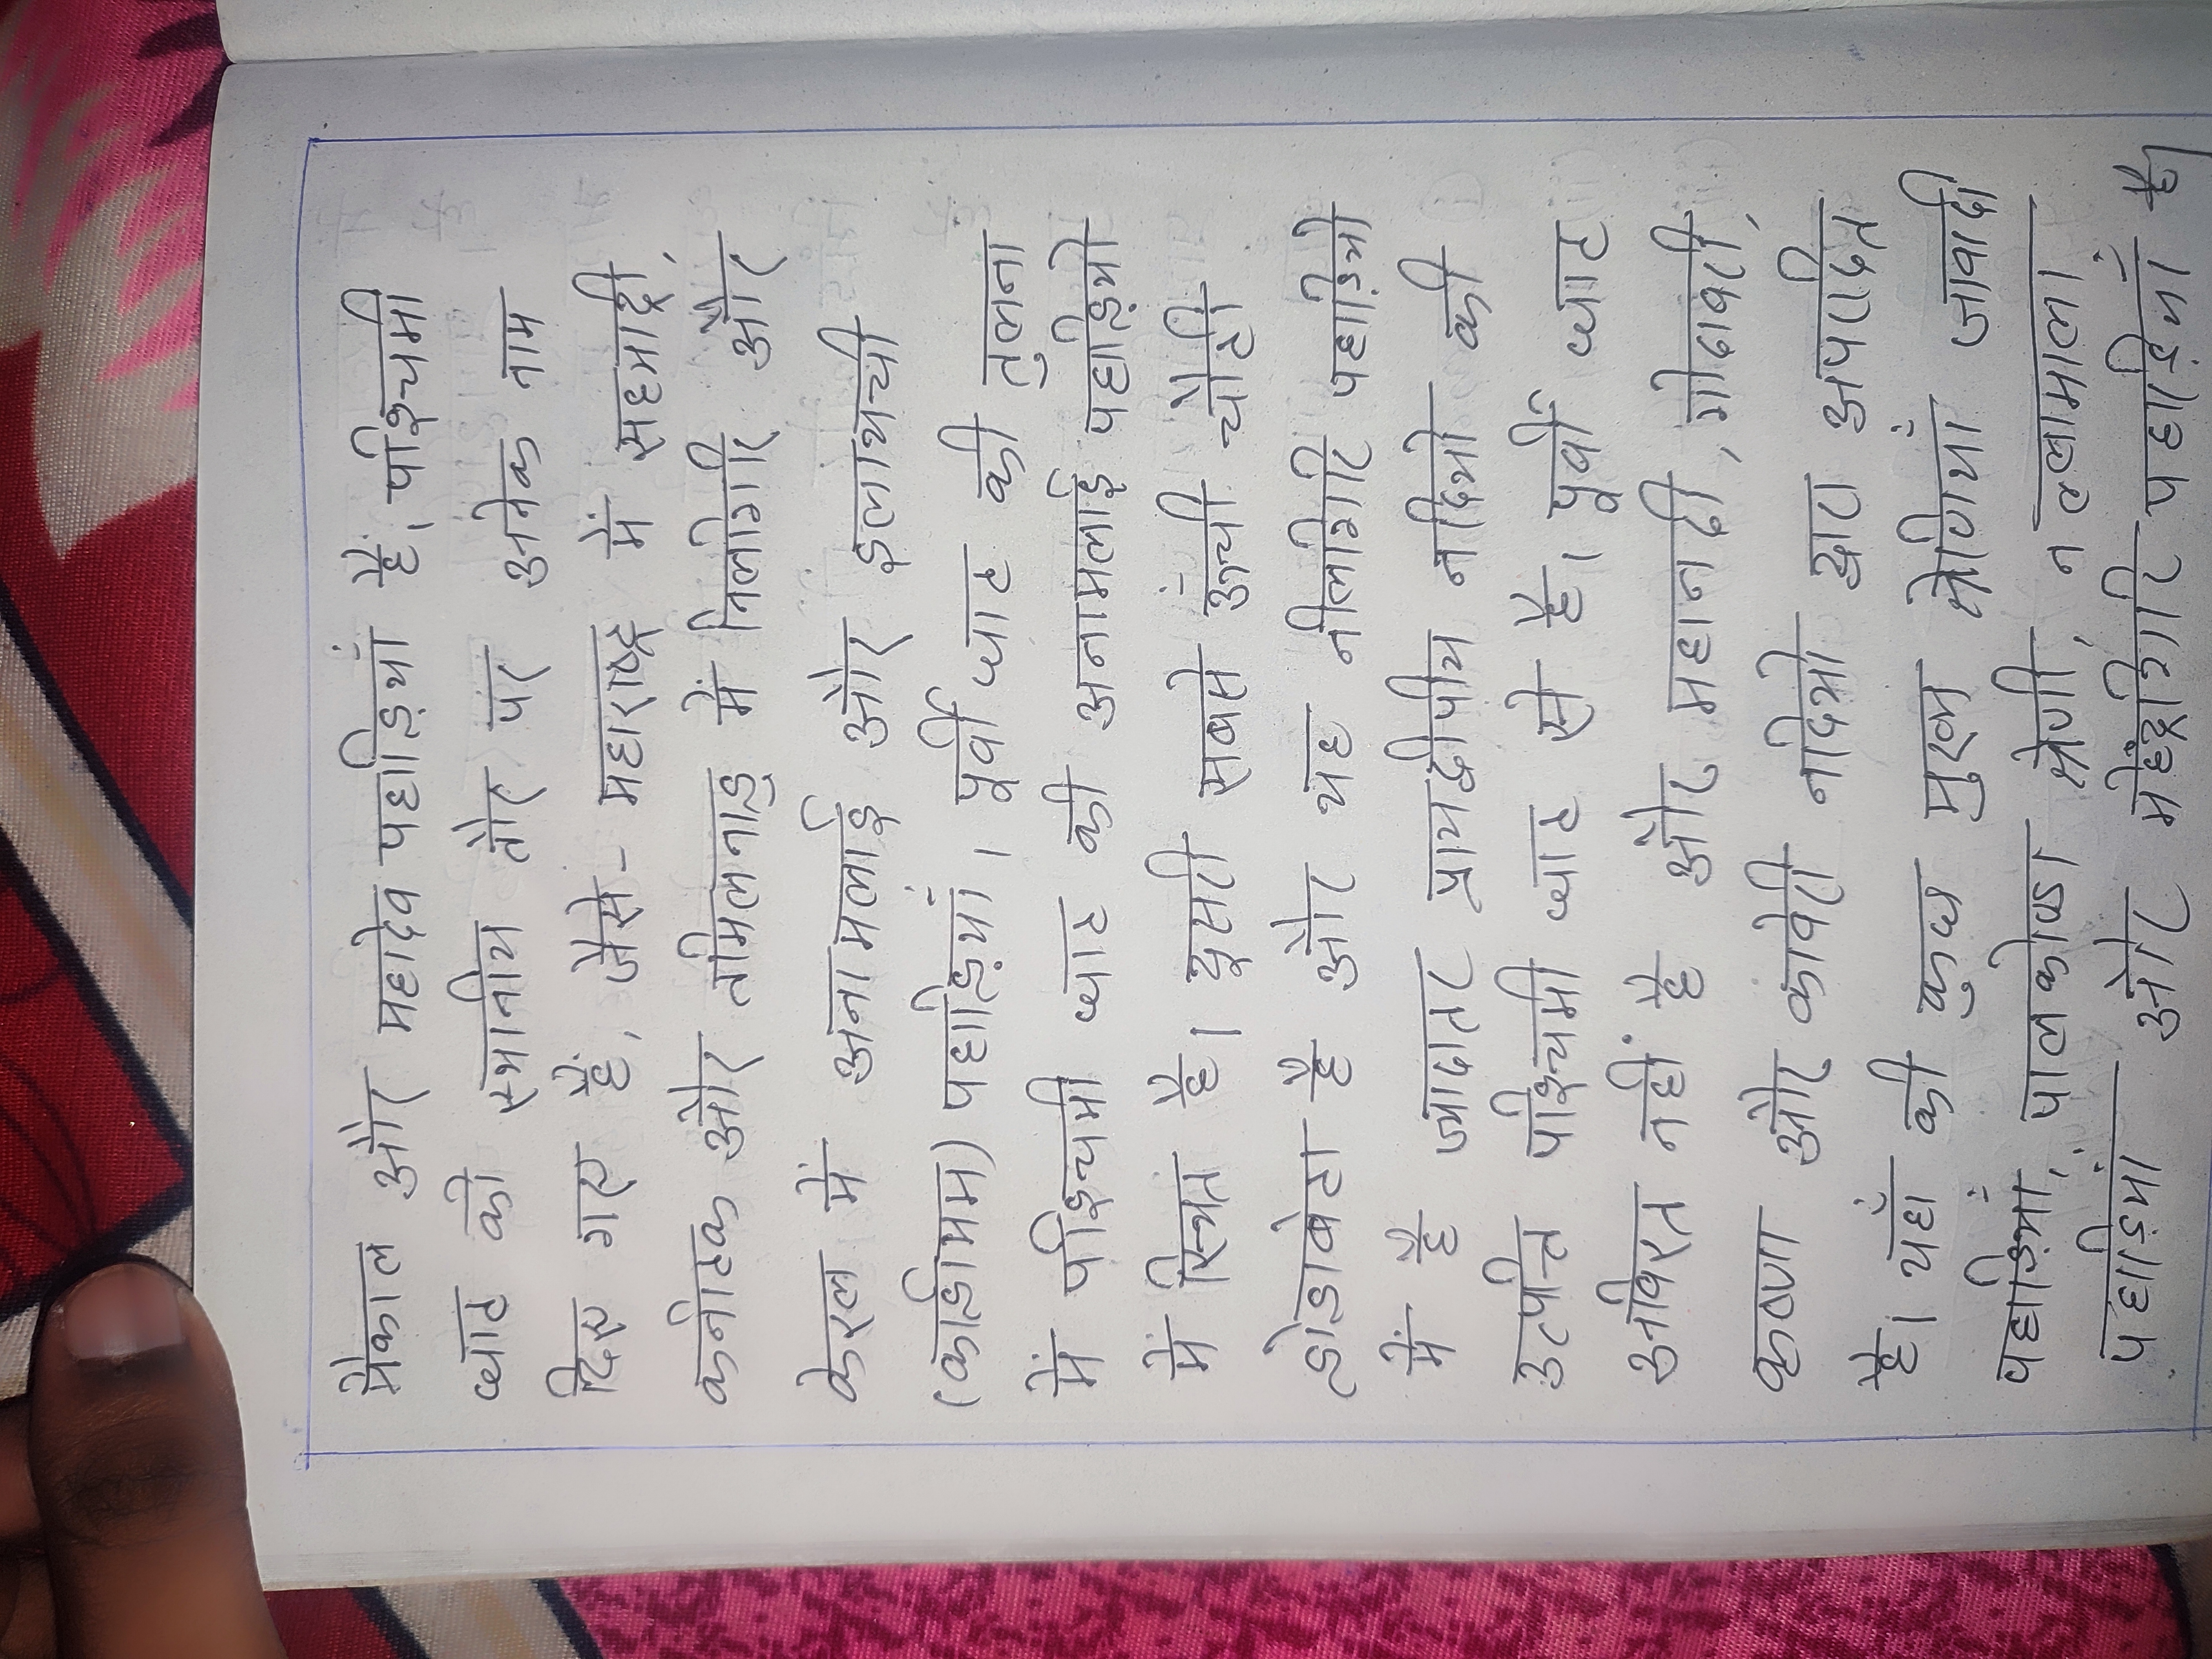 मैकाल और महादेव पहाड़ियाँ हैं। पश्चिमी
घाट को स्थानीय तौर पर अनेक नाम
दिए गए हैं, जैसे- महाराष्ट्र में सहयाद्री,
कर्नाटक और तमिलनाडु में निलगिरि और
केरल में अनामलाई और इलायची
(कार्डामम) पहाड़ियां। पूर्वी घाट की तुलना
में पश्चिमी घाट की अनामलाई पहाड़ियो
में स्थित है। दूसरी सबसे ऊंची चोटी
डोडाबेटा है और यह नीलगिरि पहाड़ियो
में है ज्यादातर प्रायद्वीपीय नदियो की
उत्पत्ति पश्चिमी घाट से है। पूर्वी घाट
अविरत नहीं है और महानदी, गोदावरी,
कृष्णा और कावेरी नदियो द्वारा अपरदित
है। यहाँ की कुछ मुख्य श्रेणियाँ जावादी
पहाड़ियाँ, पालकोंडा श्रेणी, नल्लामाला
पहाड़ियां और महेंद्रगिरि पहाड़ियाँ है।